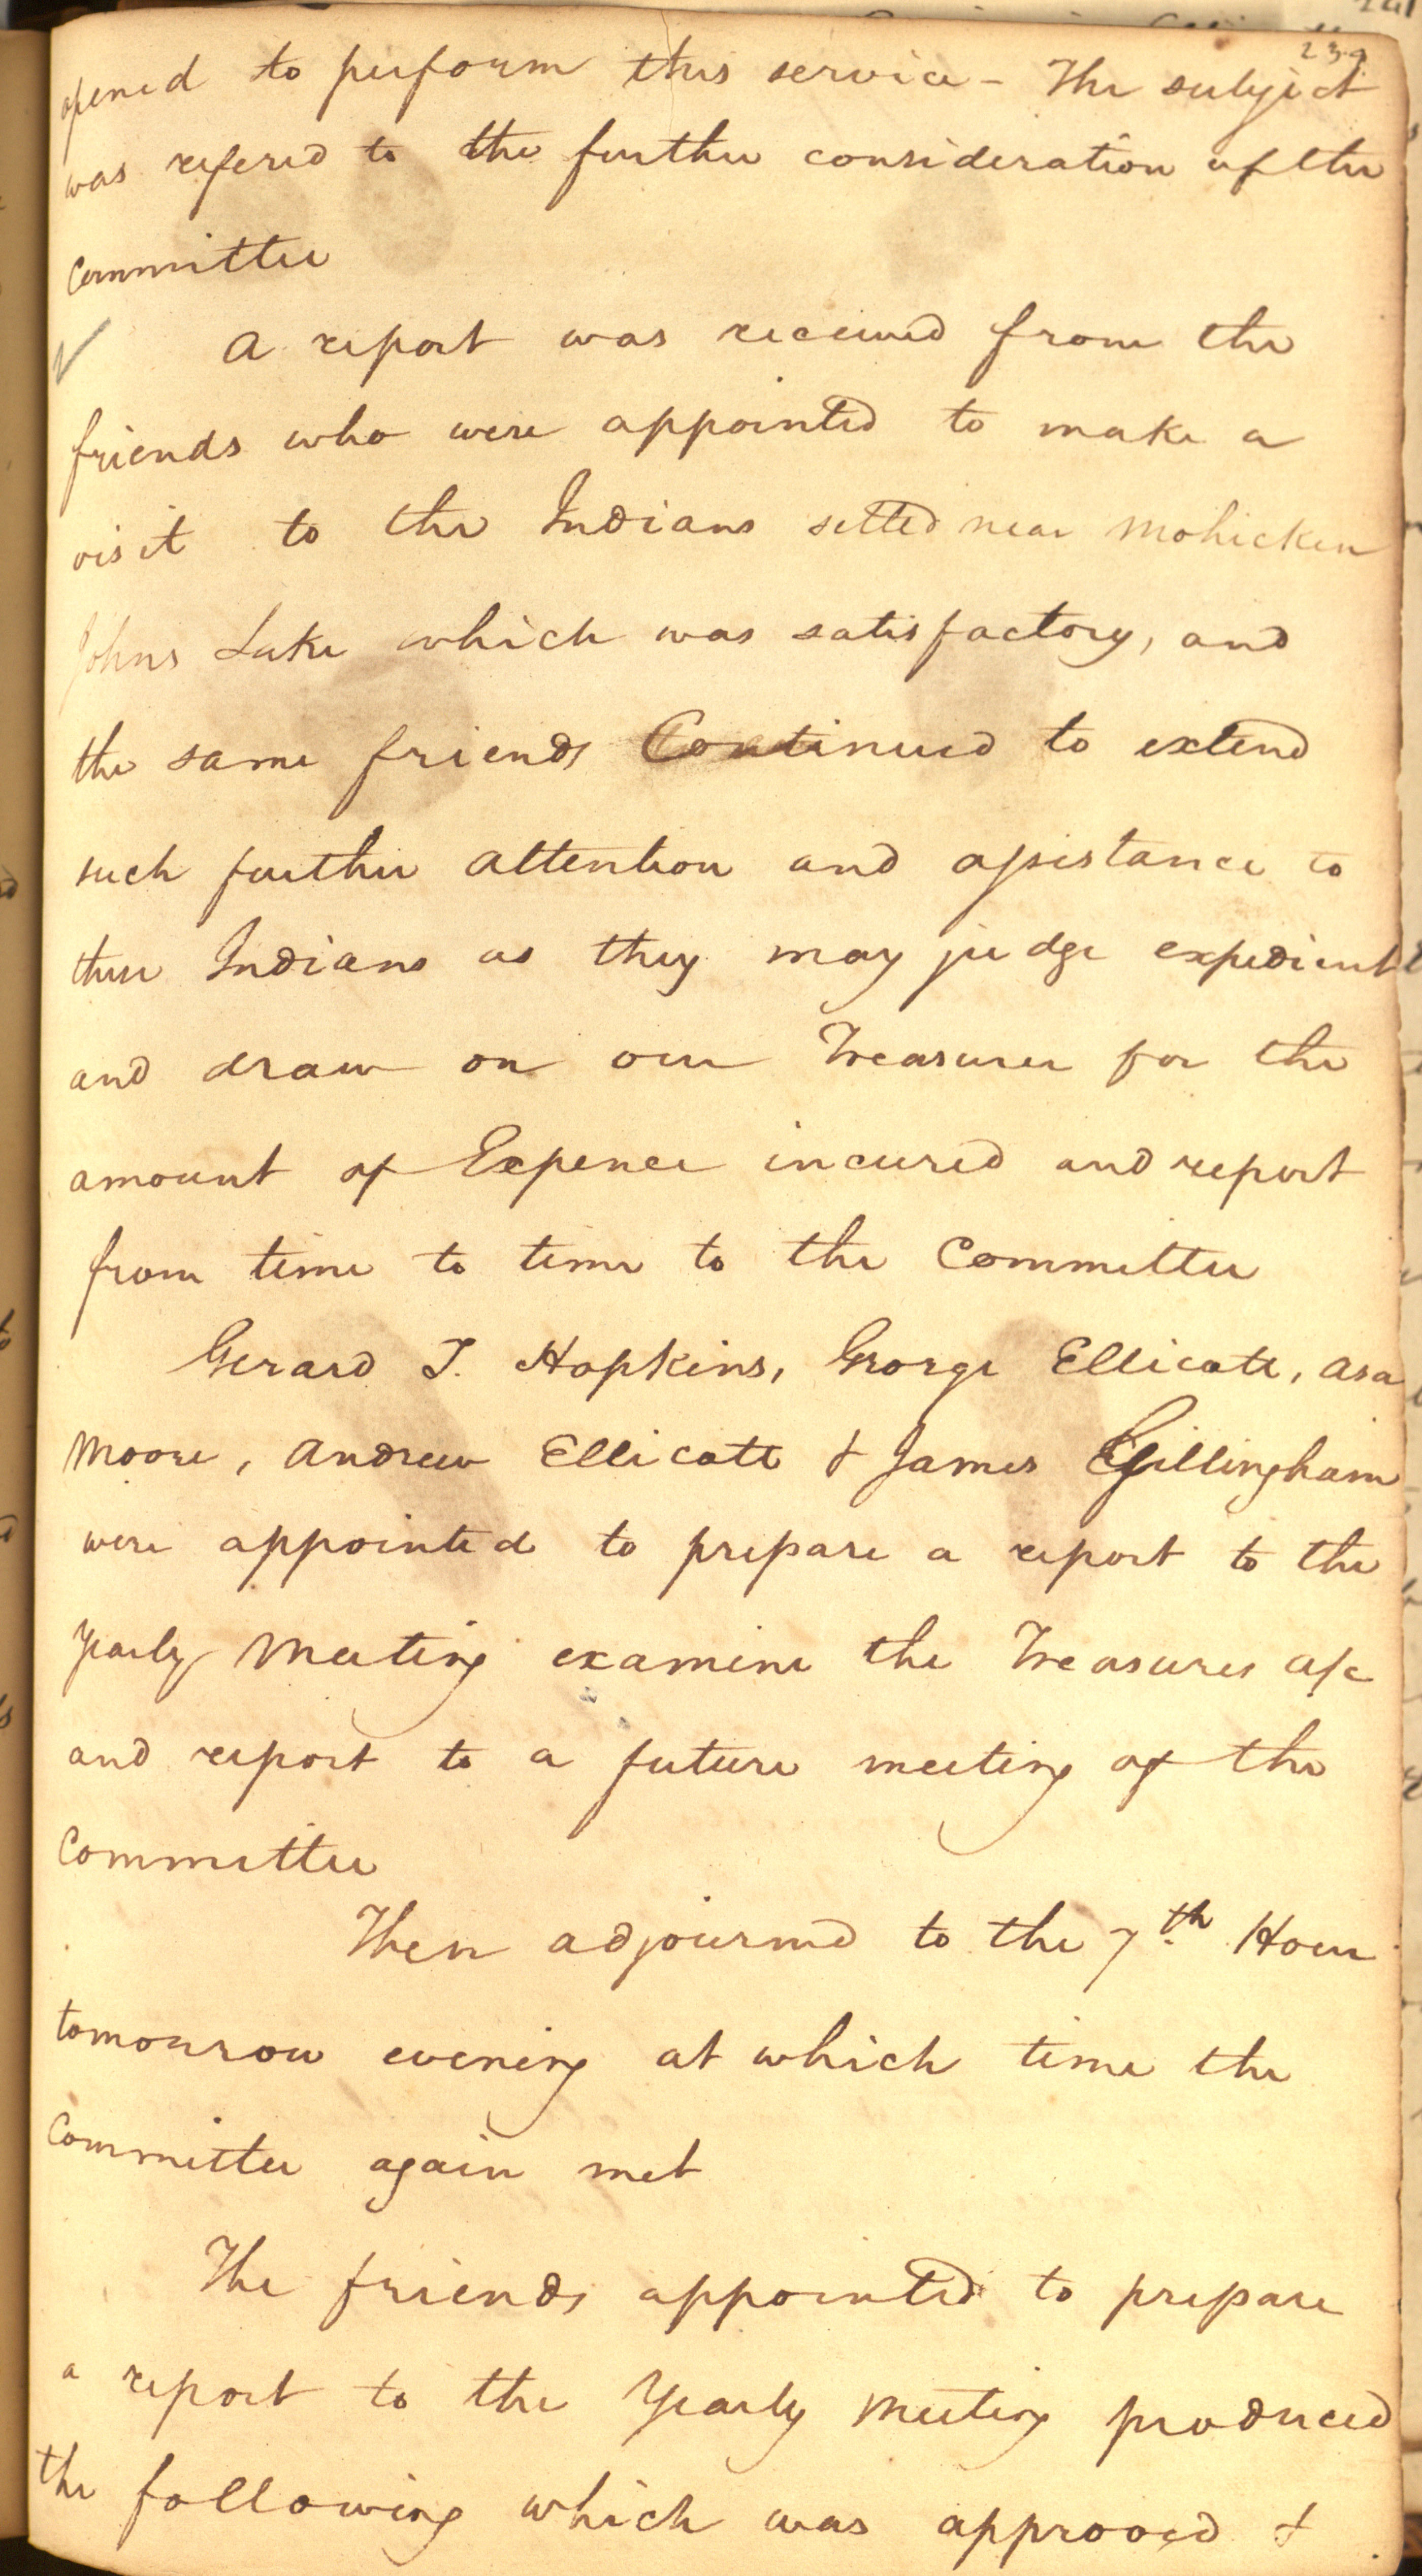 239
opened to perform this service - The subject
was refered to the further consideration of the
Committee
A report was received from the
friends who were appointed to make a
visit to the Indians setted near Mohicken
Johns Lake which was satisfactory, and
the same friends Continued to extend
such further attention and assistance to
these Indians as they may judge expedient
and draw on our Treasurer for the
amount of Expence incured and report
from time to time to the Committee
Gerard T. Hopkins, George Ellicott, Asa
Moore, Andrew Ellicott & James Gillingham
were appointed to prepare a report to the
Yearly Meeting examine the Treasures a/c
and report to a future meeting of the
Committee
Then adjourned to the 7th Hour
tomourow evening at which time the
Committee again met
The friends appointed to prepare
a report to the Yearly Meeting produced
the following which was approved &